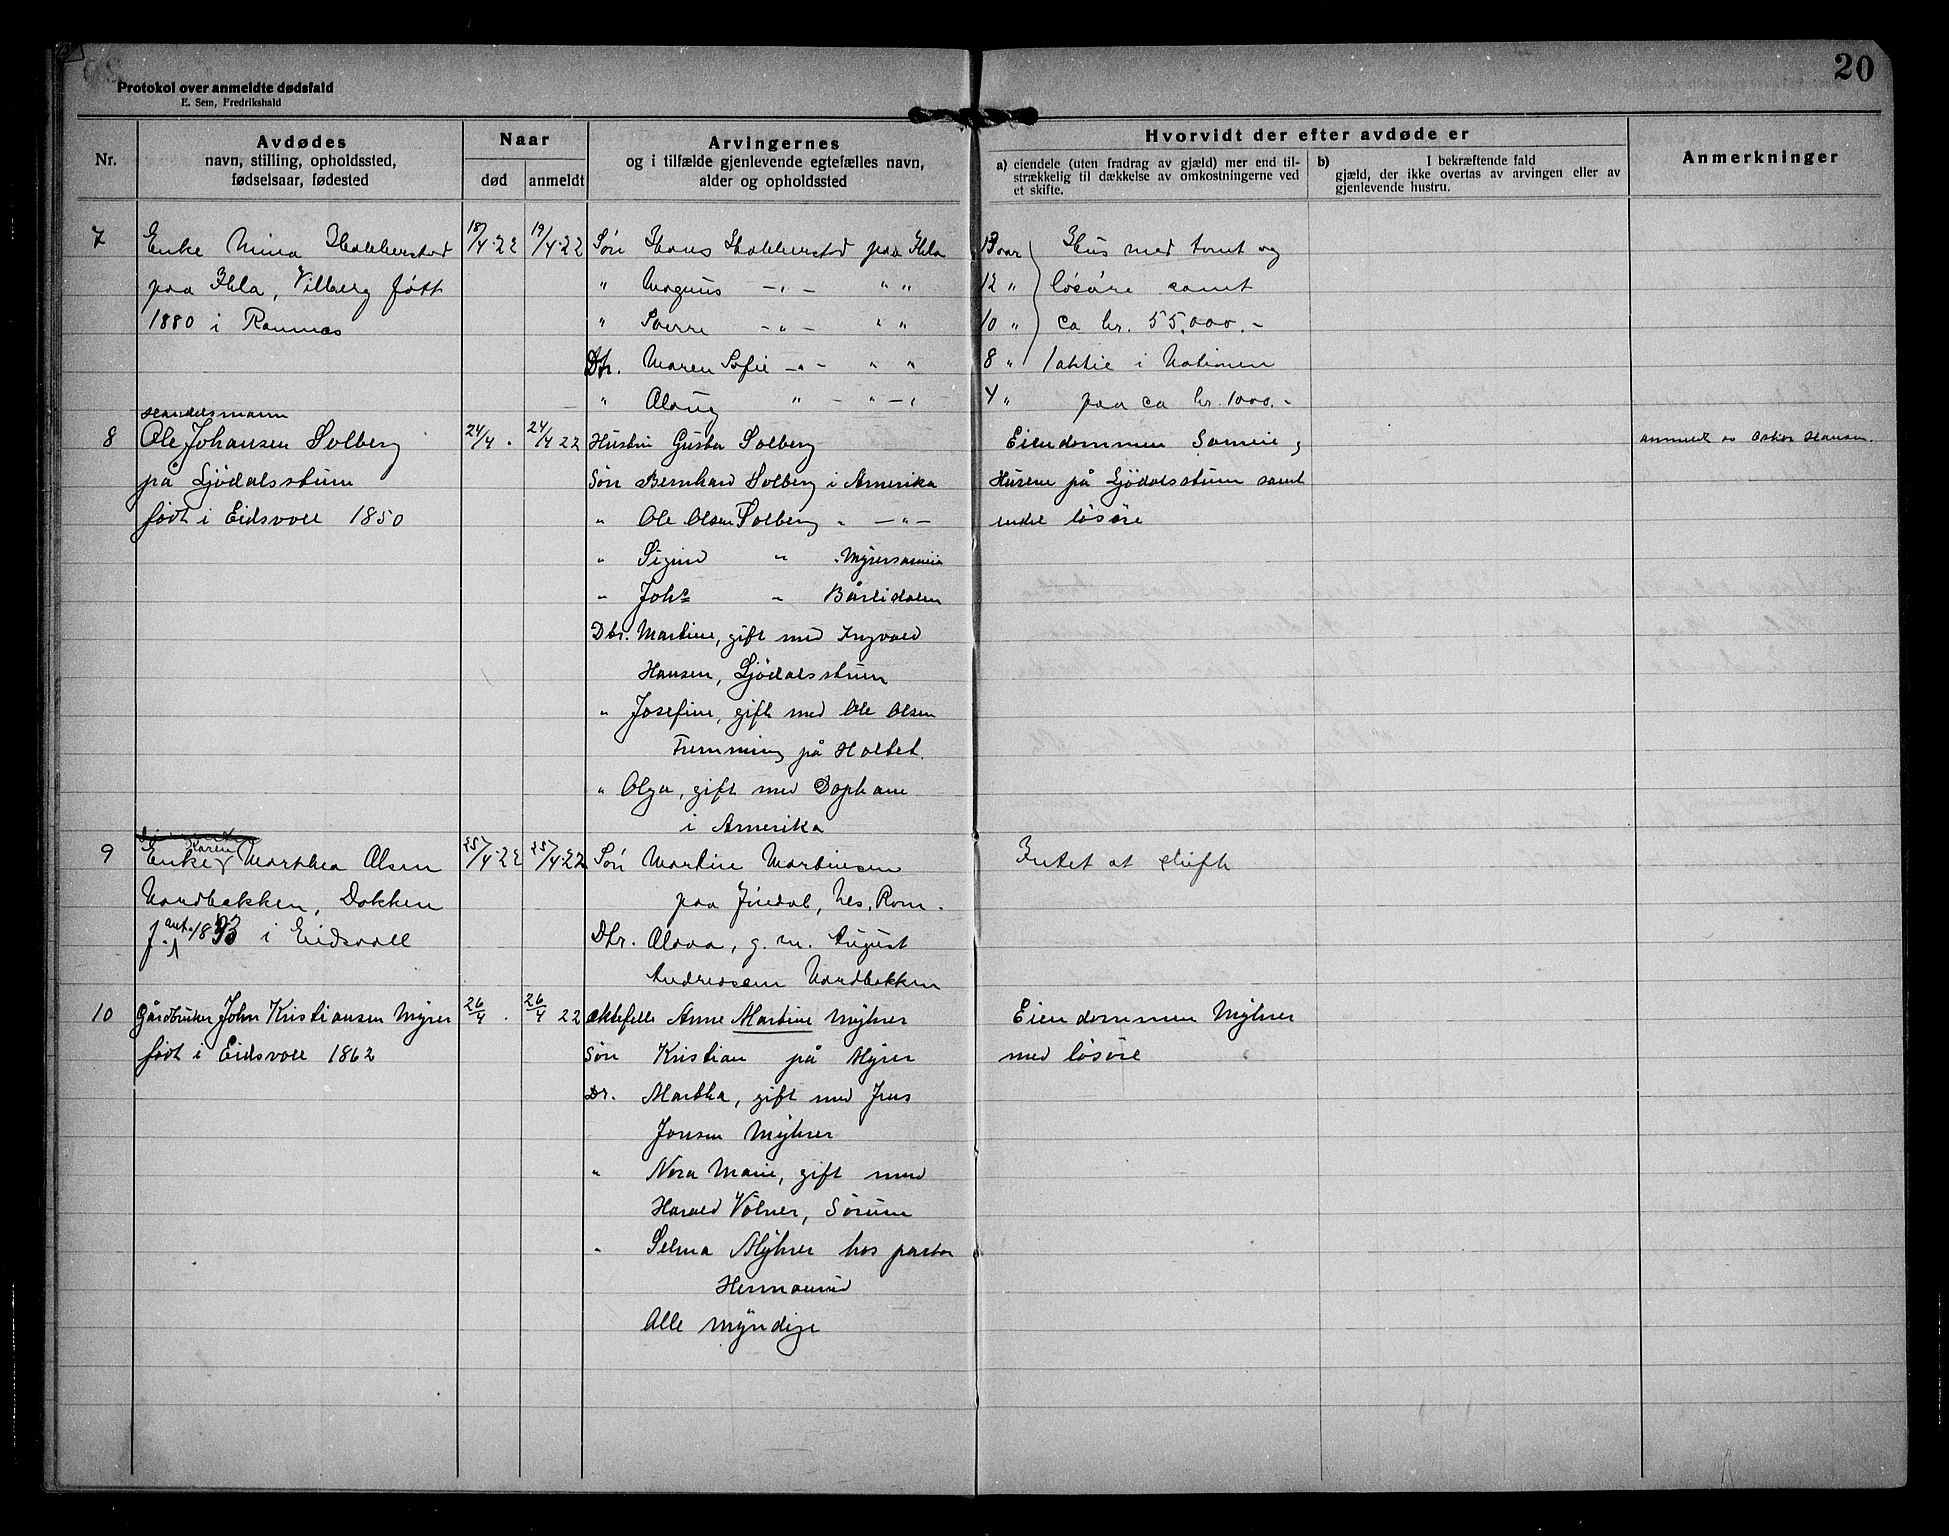 20
Protokol over anmeldte dødsfald
E. Sem, Fredrikshald
Nr.
Avdødes
navn, stilling, opholdssted,
fødselsaar, fødested
Naar
død
anmeldt
Arvingernes
og i tilfælde gjenlevende egtefælles navn,
alder og opholdssted
Hvorvidt der efter avdøde er
a) eiendele (uten fradrag av gjæld) mer end til-
strækkelig til dækkelse av omkostningerne ved
et skifte.
b) I bekræftende fald
gjæld, der ikke overtas av arvingen eller av
gjenlevende hustru.
Anmerkninger
7
Enke Mina Habberstad
paa Ihla, Vilberg født
1880 i Rannæs
18/4-22
19/4-22
Søn Hans Habberstad paa Ihla 13 aar
" Magnus -"- " " 12 "
" Sverre -"- " " 10 "
Dtr. Maren Sofie -"- " " 8 "
" Aslaug " -"- 4 "
Hus med tomt og
løsøre samt
ca kr. 55.000.-
1 aktie i Nationen
paa ca kr. 1000.-
8
Handelsmann
Ole Johansen Solberg
på Ljödalsstuen
født i Eidsvoll 1850
24/4 .
24/4 22
Hustru Gusta Solberg
Søn Bernhard Solberg i Amerika
" Ole Olsen Solberg " -"-
" Sigurd " Myrersameie
" Johs " Bårlidalen
Dtr. Martine, gift med Ingvald
Hansen, Ljödalsstuen
" Josefine, gift med Ole Olsen
Fremming på Holtet.
" Olga, gift med
i Amerika
Eiendommen Sameie
Husene på Ljödalsstuen samt
endel løsøre
anmeldt av Oskar Hansen.
9
Enke Karen Marthea Olsen
Nordbakken, Dokken
f. ant. 1833 i Eidsvoll
25/4-22
25/4-22
Søn Martin Martinsen
paa Jindal, Nes, Rom.
Dtr. Olava, g. m. August
Andreassen Nordbakken
Intet at skifte
10
Gårdbruker John Kristiansen Myrer
født i Eidsvoll 1862
26/4 .
26/4 22
Ektefelle Anne Martine Myhrer
Søn Kristian på Myrer
Dr. Martha, gift med Jens
Jonsen Myhrer
" Nora Marie, gift med
Harald Völner, Sørum
" Selma Myhrer hos pastor
Hermanrud
Alle myndige
Eiendommen Myhrer
med løsøre